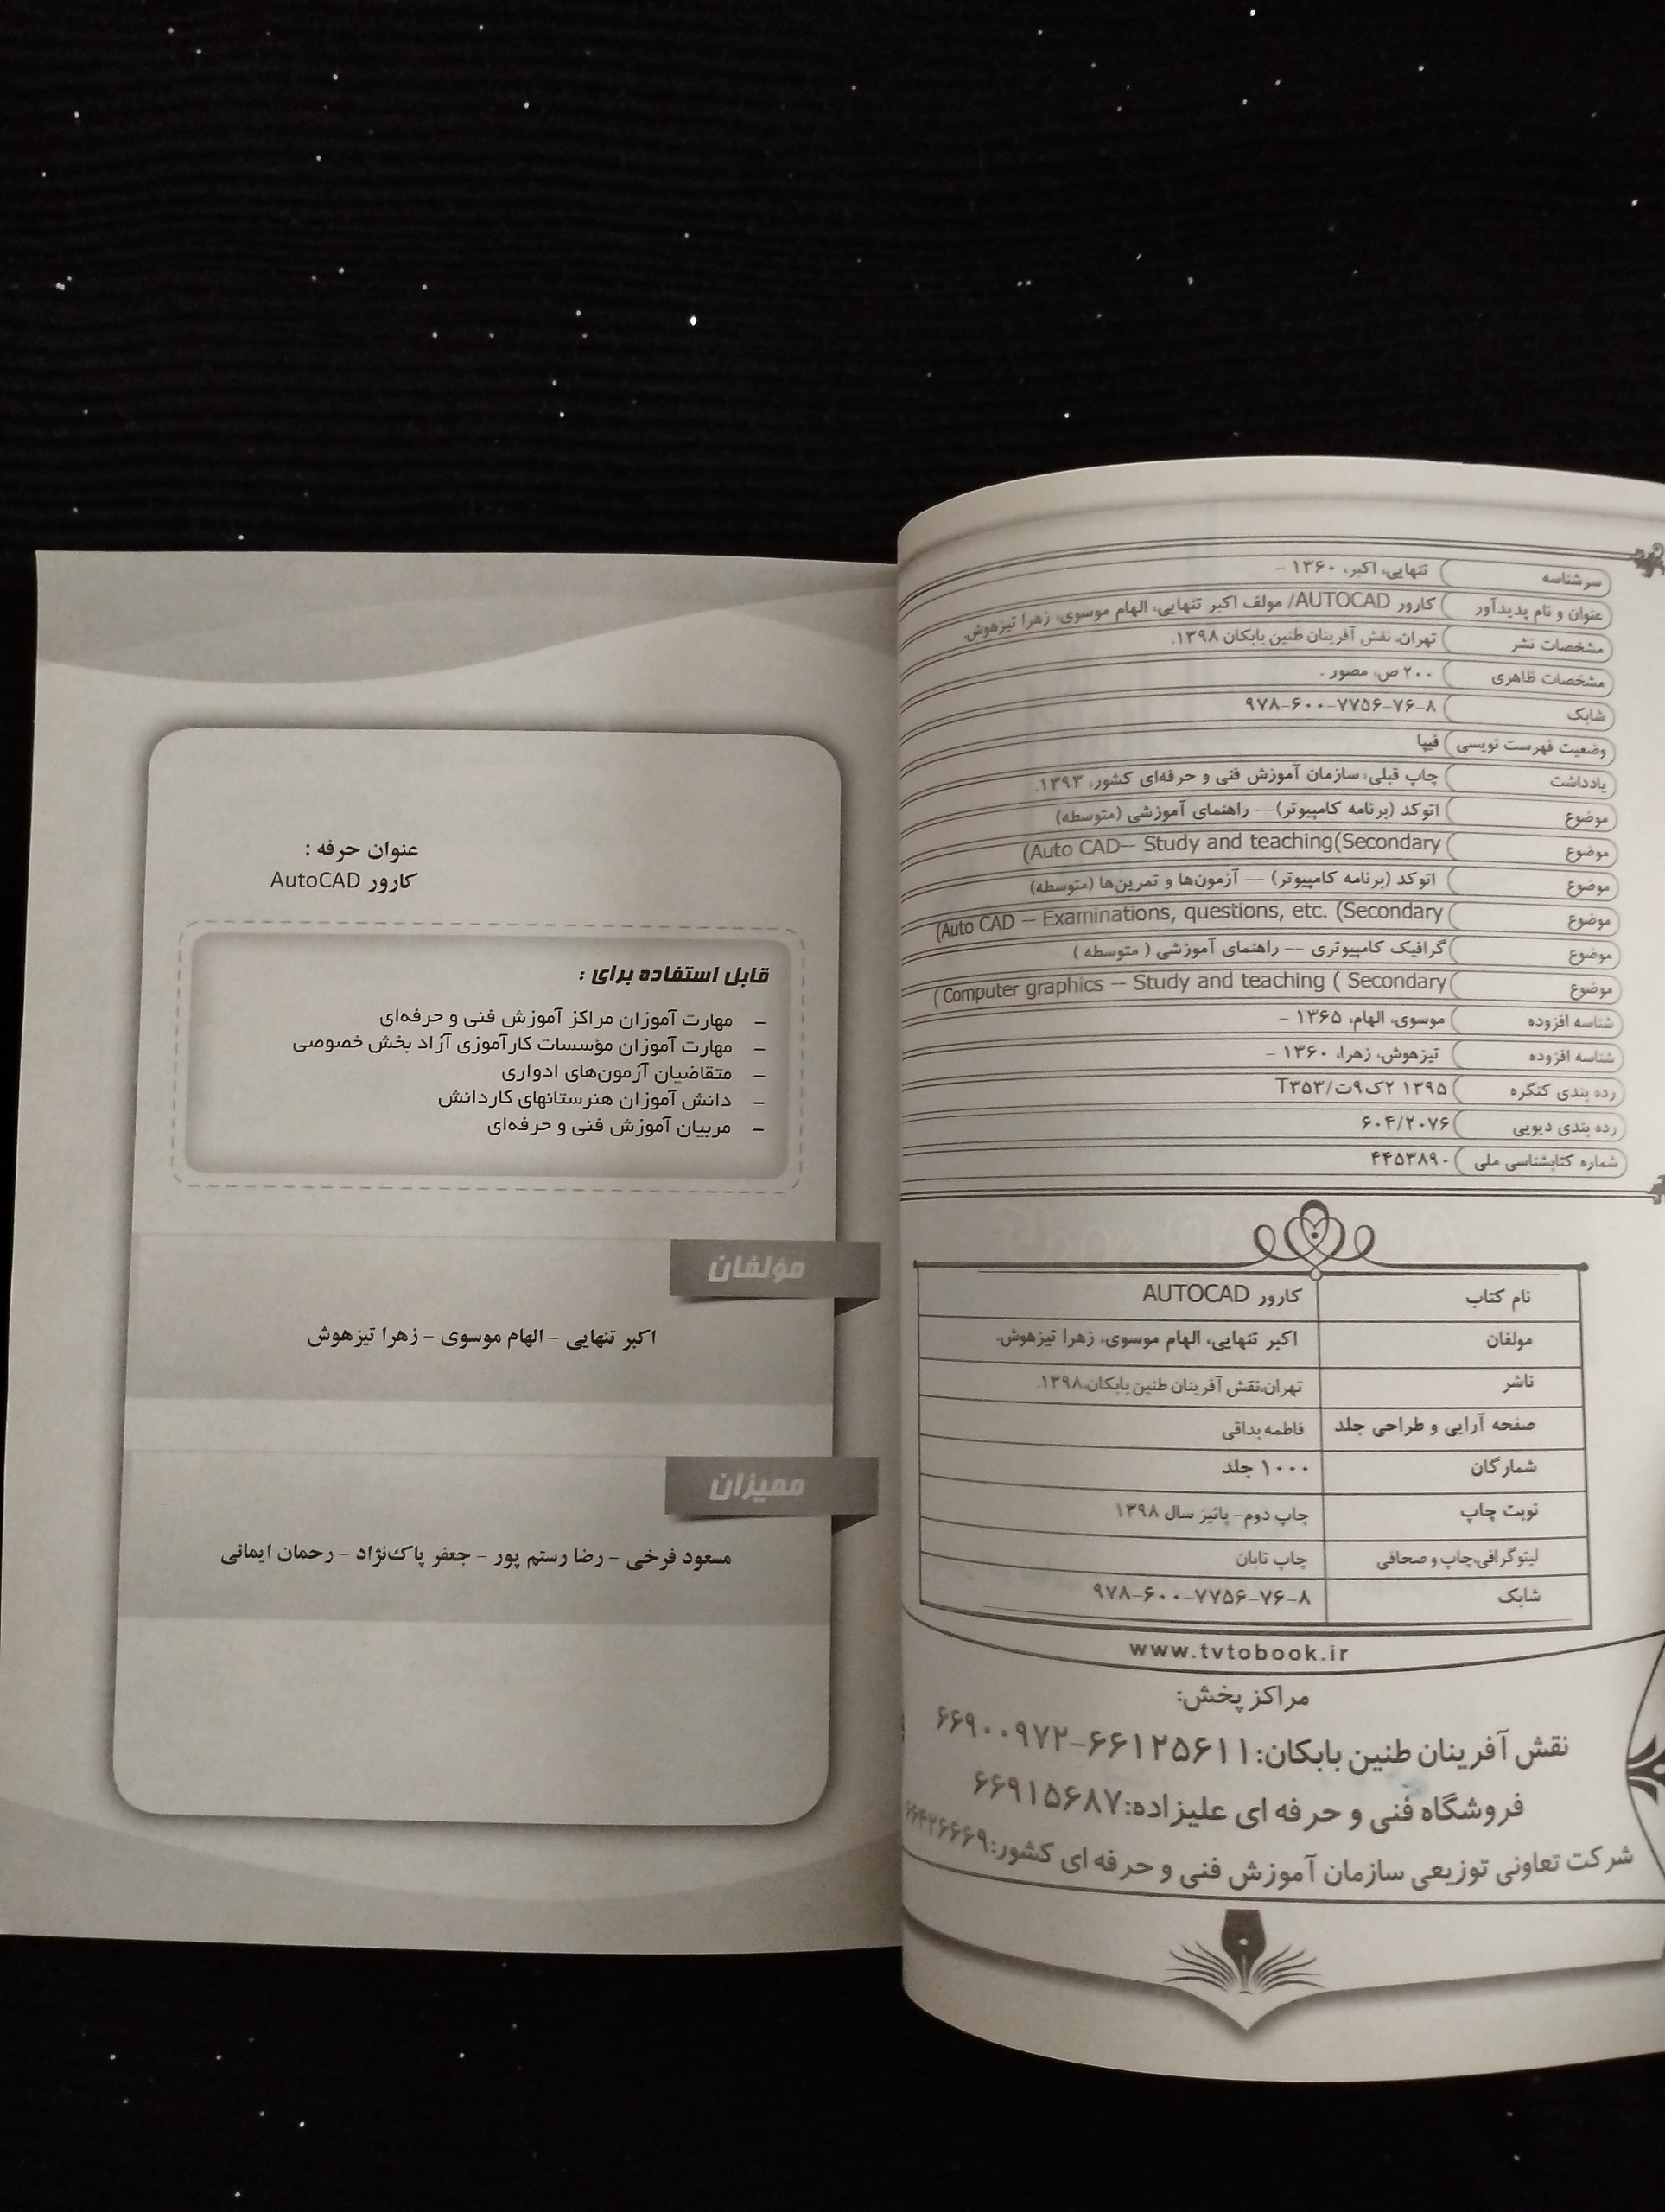 سرشناسه تنهایی، اکبر، ۱۳۶۰ -
عنوان و نام پدیدآور کارور AUTOCAD/ مولف اکبر تنهایی، الهام موسوی، زهرا تیزهوش.
مشخصات نشر تهران، نقش آفرینان طنین بابکان ۱۳۹۸.
مشخصات ظاهری ۲۰۰ ص، مصور .
شابک ۹۷۸-۶۰۰-۷۷۵۶-۷۶-۸
وضعیت فهرست نویسی فیپا
یادداشت چاپ قبلی، سازمان آموزش فنی و حرفه‌ای کشور، ۱۳۹۳.
موضوع اتوکد (برنامه کامپیوتر)-- راهنمای آموزشی (متوسطه)
موضوع (Auto CAD-- Study and teaching(Secondary
موضوع اتوکد (برنامه کامپیوتر) -- آزمون‌ها و تمرین‌ها (متوسطه)
موضوع (Auto CAD -- Examinations, questions, etc. (Secondary
موضوع گرافیک کامپیوتری -- راهنمای آموزشی ( متوسطه )
موضوع ( Computer graphics -- Study and teaching ( Secondary
شناسه افزوده موسوی، الهام، ۱۳۶۵ -
شناسه افزوده تیزهوش، زهرا، ۱۳۶۰ -
رده بندی کنگره ۱۳۹۵ ۲ک۹ت/T۳۵۳
رده بندی دیویی ۶۰۴/۲۰۷۶
شماره کتابشناسی ملی ۴۴۵۳۸۹۰
نام کتاب کارور AUTOCAD
مولفان اکبر تنهایی، الهام موسوی، زهرا تیزهوش.
ناشر تهران،نقش آفرینان طنین بابکان،۱۳۹۸.
صفحه آرایی و طراحی جلد فاطمه بداقی
شمارگان ۱۰۰۰ جلد
نوبت چاپ چاپ دوم- پائیز سال ۱۳۹۸
لیتوگرافی،چاپ و صحافی چاپ تابان
شابک ۹۷۸-۶۰۰-۷۷۵۶-۷۶-۸
www.tvtobook.ir
مراکز پخش:
نقش آفرینان طنین بابکان:۶۶۱۲۵۶۱۱-۶۶۹۰۰۹۷۲
فروشگاه فنی و حرفه ای علیزاده:۶۶۹۱۵۶۸۷
شرکت تعاونی توزیعی سازمان آموزش فنی و حرفه ای کشور:۶۶۴۲۶۶۶۹
عنوان حرفه :
کارور AutoCAD
قابل استفاده برای :
- مهارت آموزان مراکز آموزش فنی و حرفه‌ای
- مهارت آموزان مؤسسات کارآموزی آزاد بخش خصوصی
- متقاضیان آزمون‌های ادواری
- دانش آموزان هنرستانهای کاردانش
- مربیان آموزش فنی و حرفه‌ای
مؤلفان
اکبر تنهایی - الهام موسوی - زهرا تیزهوش
ممیزان
مسعود فرخی - رضا رستم پور - جعفر پاک‌نژاد - رحمان ایمانی